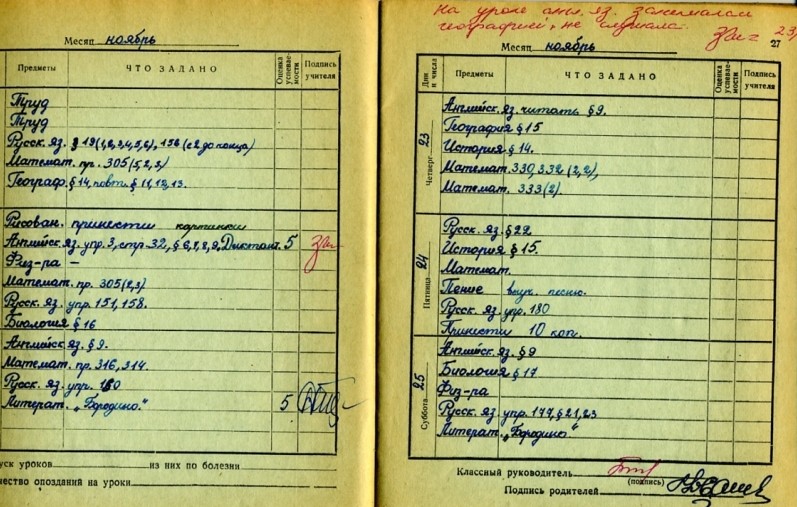 Месяц ноябрь
Предметы ЧТО ЗАДАНО Оценка успеваемости Подпись учителя
Труд
Труд
Русск. яз. § 19 (1,2,3,4,5,6), 156 (с 2 до конца)
Математ. пр. 305 (5,2,3)
Географ. § 14, повт. § 11, 12, 13.
Рисован. принести картинки
Английск. яз. упр. 3, стр-32, § 6,7,8,9, Диктант. 5
Физ-ра –
Математ. пр. 305 (2,3)
Русск. яз. упр. 151, 158.
Биология § 16
Английск. яз. § 9.
Математ. пр. 316, 314.
Русск. яз. упр. 160
Литерат. „Бородино." 5
уск уроков из них по болезни
чество опозданий на уроки
На уроке англ. яз. занималась
географией, не слушала. 23/
Месяц ноябрь 27
Дни и числа Предметы ЧТО ЗАДАНО Оценка успеваемости Подпись учителя
Четверг 23
Английск. яз. читать § 9.
География § 15
История § 14.
Математ. 330, 332 (2,2),
Математ. 333 (2)
Пятница 24
Русск. яз. § 22
История § 15.
Математ.
Пение выуч. песню.
Русск. яз. упр. 180
Принести 10 коп.
Суббота 25
Английск. яз. § 9
Биология § 17
Физ-ра
Русск. яз. упр. 177, § 21, 23
Литерат. „Бородино."
Классный руководитель
(подпись)
Подпись родителей